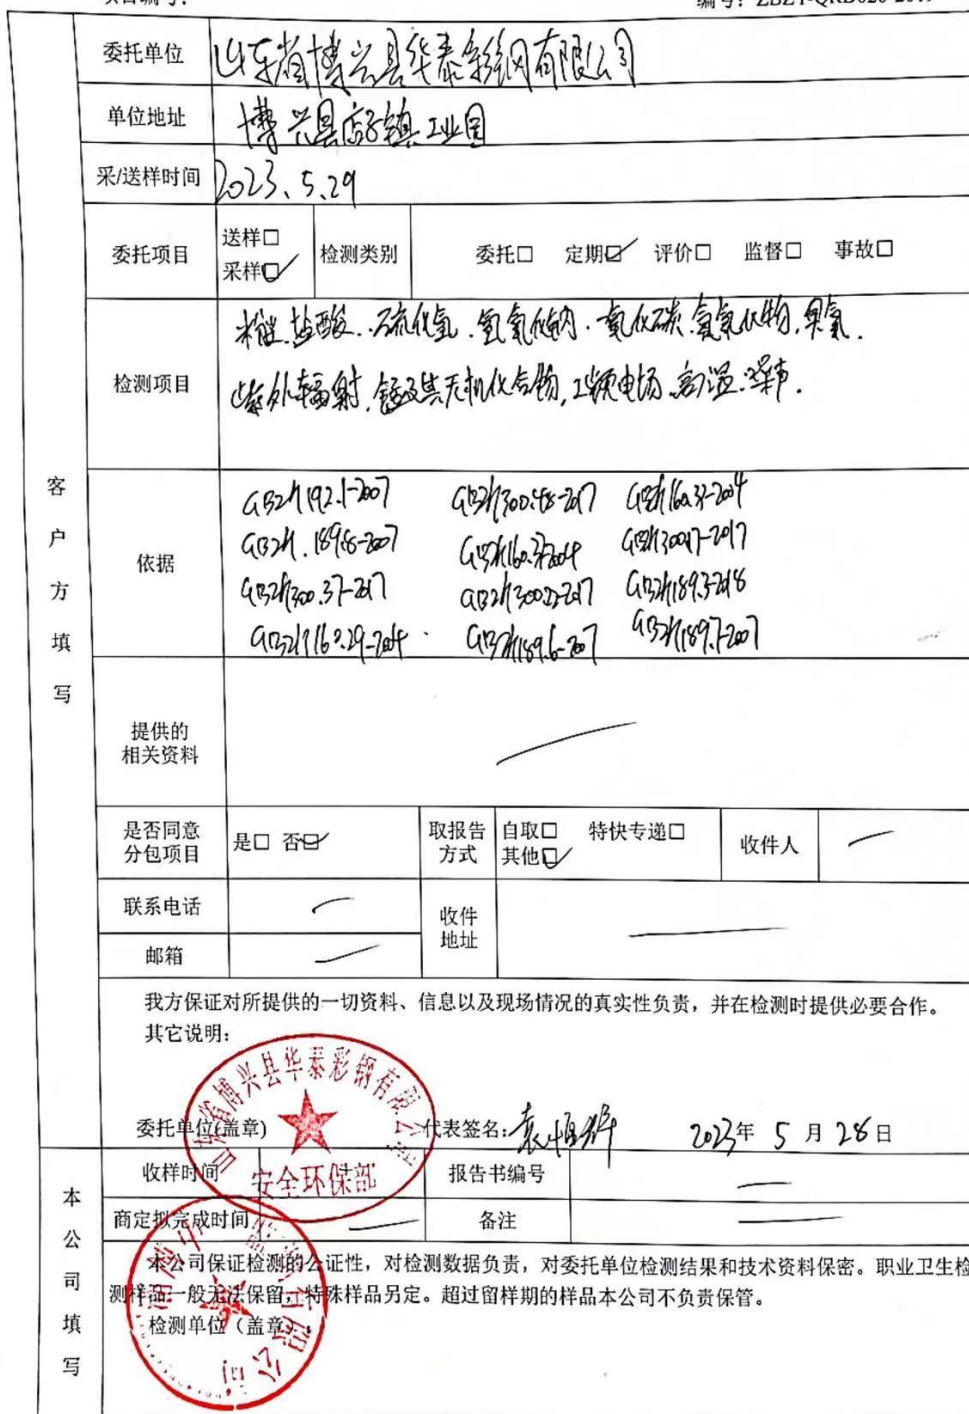 委托单位 山东省博兴县华泰彩钢有限公司
单位地址 博兴县店子镇工业园
采/送样时间 2023.5.29
委托项目 送样□ 采样☑ 检测类别 委托□ 定期☑ 评价□ 监督□ 事故□
检测项目
盐酸.硫化氢.氢氧化钠.氧化碳.氰氧化物.臭氧.
紫外辐射.锰及其无机化合物.工频电场.高温.噪声.
客户方填写
依据
GBZ/T192.1-2007 GBZ/T300.48-2017 GBZ/T160.33-2004
GBZ/T.189.8-2007 GBZ/T300.17-2017
GBZ/T300.37-2017 GBZ/T300.22-2017 GBZ/T189.3-2018
GBZ/T160.29-2004 GBZ/T189.6-2007 GBZ/T189.7-2007
提供的
相关资料
是否同意
分包项目 是□ 否☑ 取报告
方式 自取□ 特快专递□
其他☑ 收件人
联系电话 收件
地址
邮箱
我方保证对所提供的一切资料、信息以及现场情况的真实性负责，并在检测时提供必要合作。
其它说明：
山东省博兴县华泰彩钢有限公司
安全环保部
委托单位(盖章) 代表签名: 2023年 5 月 28 日
本公司填写
收样时间 报告书编号
商定拟完成时间 备注
本公司保证检测的公证性，对检测数据负责，对委托单位检测结果和技术资料保密。职业卫生检
测样品一般无法保留，特殊样品另定。超过留样期的样品本公司不负责保管。
检测单位（盖章）
有限公司